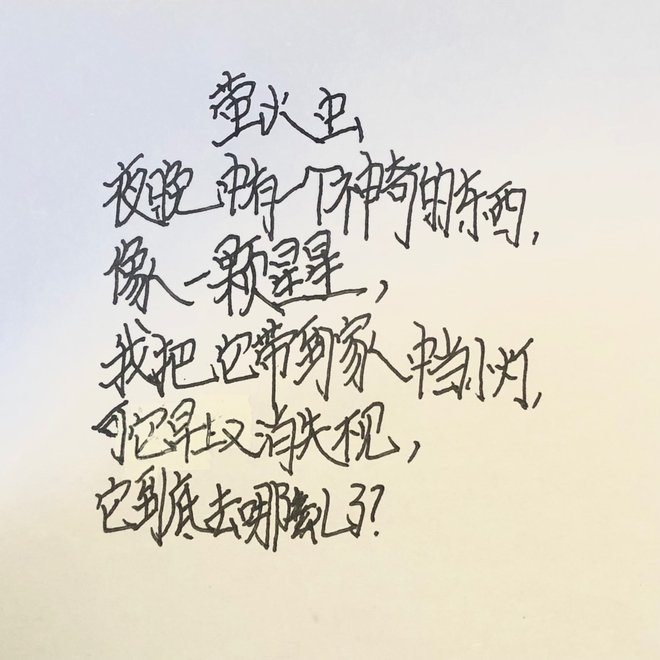 萤火虫
夜晚中有一个神奇的东西,
像一颗星星,
我把它带到家中当小灯,
可它早上又消失不见,
它到底去哪儿了?